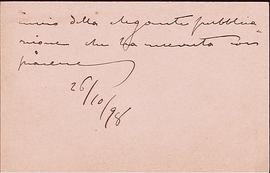 invio della elegante pubblica
zione che ha
piacere
26/10/98